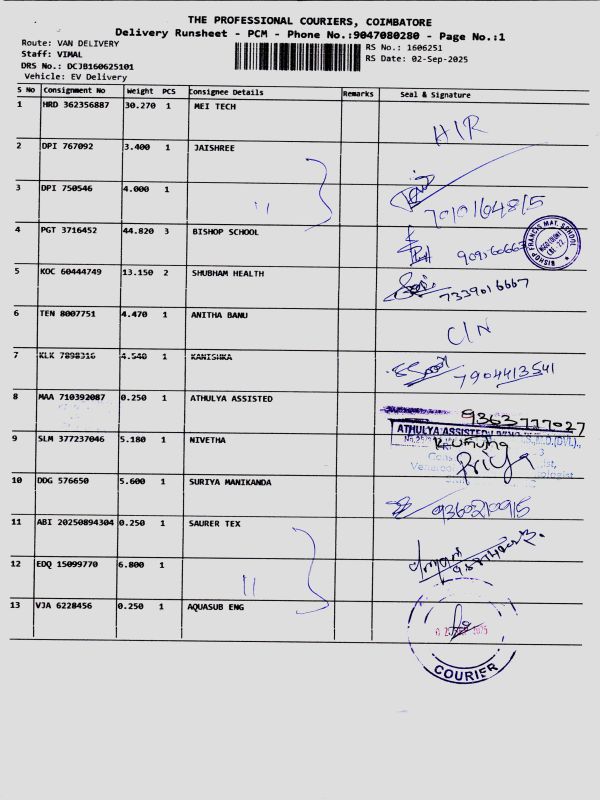 THE PROFESSIONAL COURIERS, COIMBATORE
Delivery Runsheet - PCM - Phone No.:9047080280 - Page No.:1
Route: VAN DELIVERY
RS No.: 1606251
Staff: VIMAL
RS Date: 02-Sep-2025
DRS No.: DCJB160625101
Vehicle: EV Delivery
S No Consignment No Weight PCS Consignee Details Remarks Seal & Signature
1 HRD 362356887 30.270 1 MEI TECH H/R
2 DPI 767092 3.400 1 JAISHREE
3 DPI 750546 4.000 1 11
4 PGT 3716452 44.820 3 BISHOP SCHOOL
BISHOP FRANCIS MAT. SCHOOL
5 KOC 60444749 13.150 2 SHUBHAM HEALTH 7339016667
6 TEN 8007751 4.470 1 ANITHA BANU C/N
7 KLK 7898316 4.540 1 KANISHKA 7904413541
8 MAA 710392087 0.250 1 ATHULYA ASSISTED 9363777027
ATHULYA ASSISTED
9 SLM 377237046 5.180 1 NIVETHA Priya
10 DDG 576650 5.600 1 SURIYA MANIKANDA 9360210915
11 ABI 20250894304 0.250 1 SAURER TEX
12 EDQ 15099770 6.800 1 11
13 VJA 6228456 0.250 1 AQUASUB ENG
COURIER